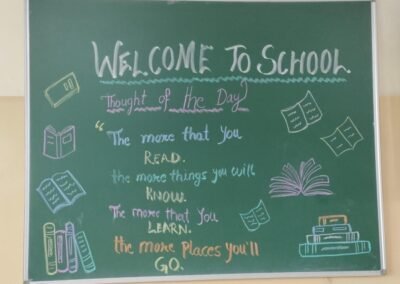 WELCOME TO SCHOOL.
Thought of the Day
“The more that you
READ.
the more things you will
KNOW.
The more that you
LEARN.
the more places you'll
GO.